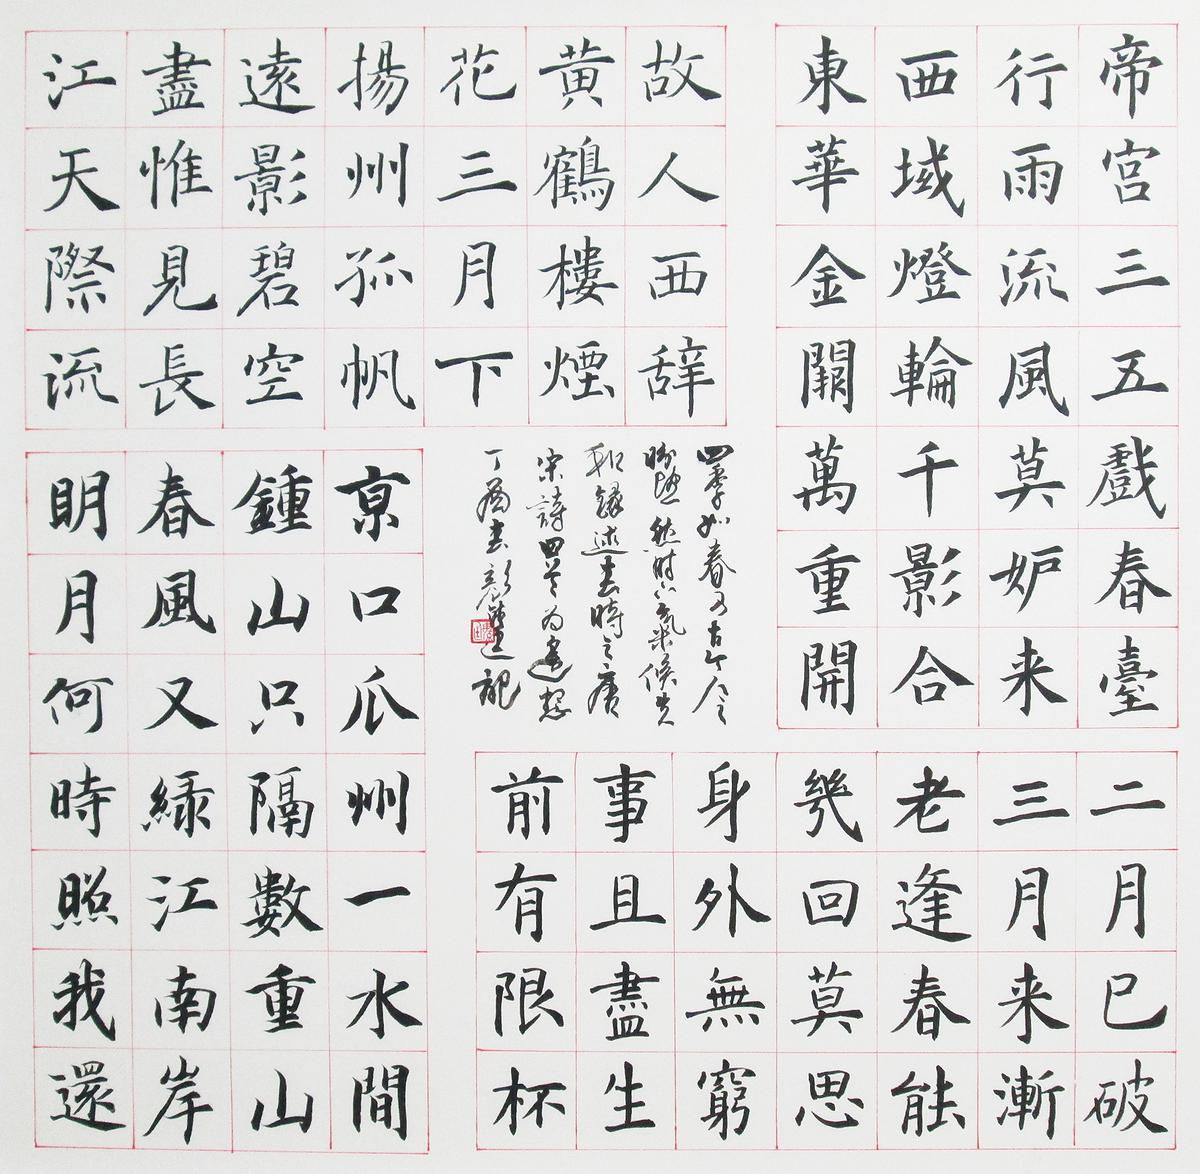 帝宮三五戲春臺
行雨流風莫妒来
西域燈輪千影合
東華金闕萬重開
故人西辞
黄鶴樓煙
花三月下
揚州孤帆
遠影碧空
盡惟見長
江天際流
二月已破
三月来漸
老逢春能
幾回莫思
身外無窮
事且盡生
前有限杯
亰口瓜州一水間
鍾山只隔數重山
春風又緑江南岸
明月何時照我還
四季如春
述春時之唐
宋詩四首為
丁酉春 記